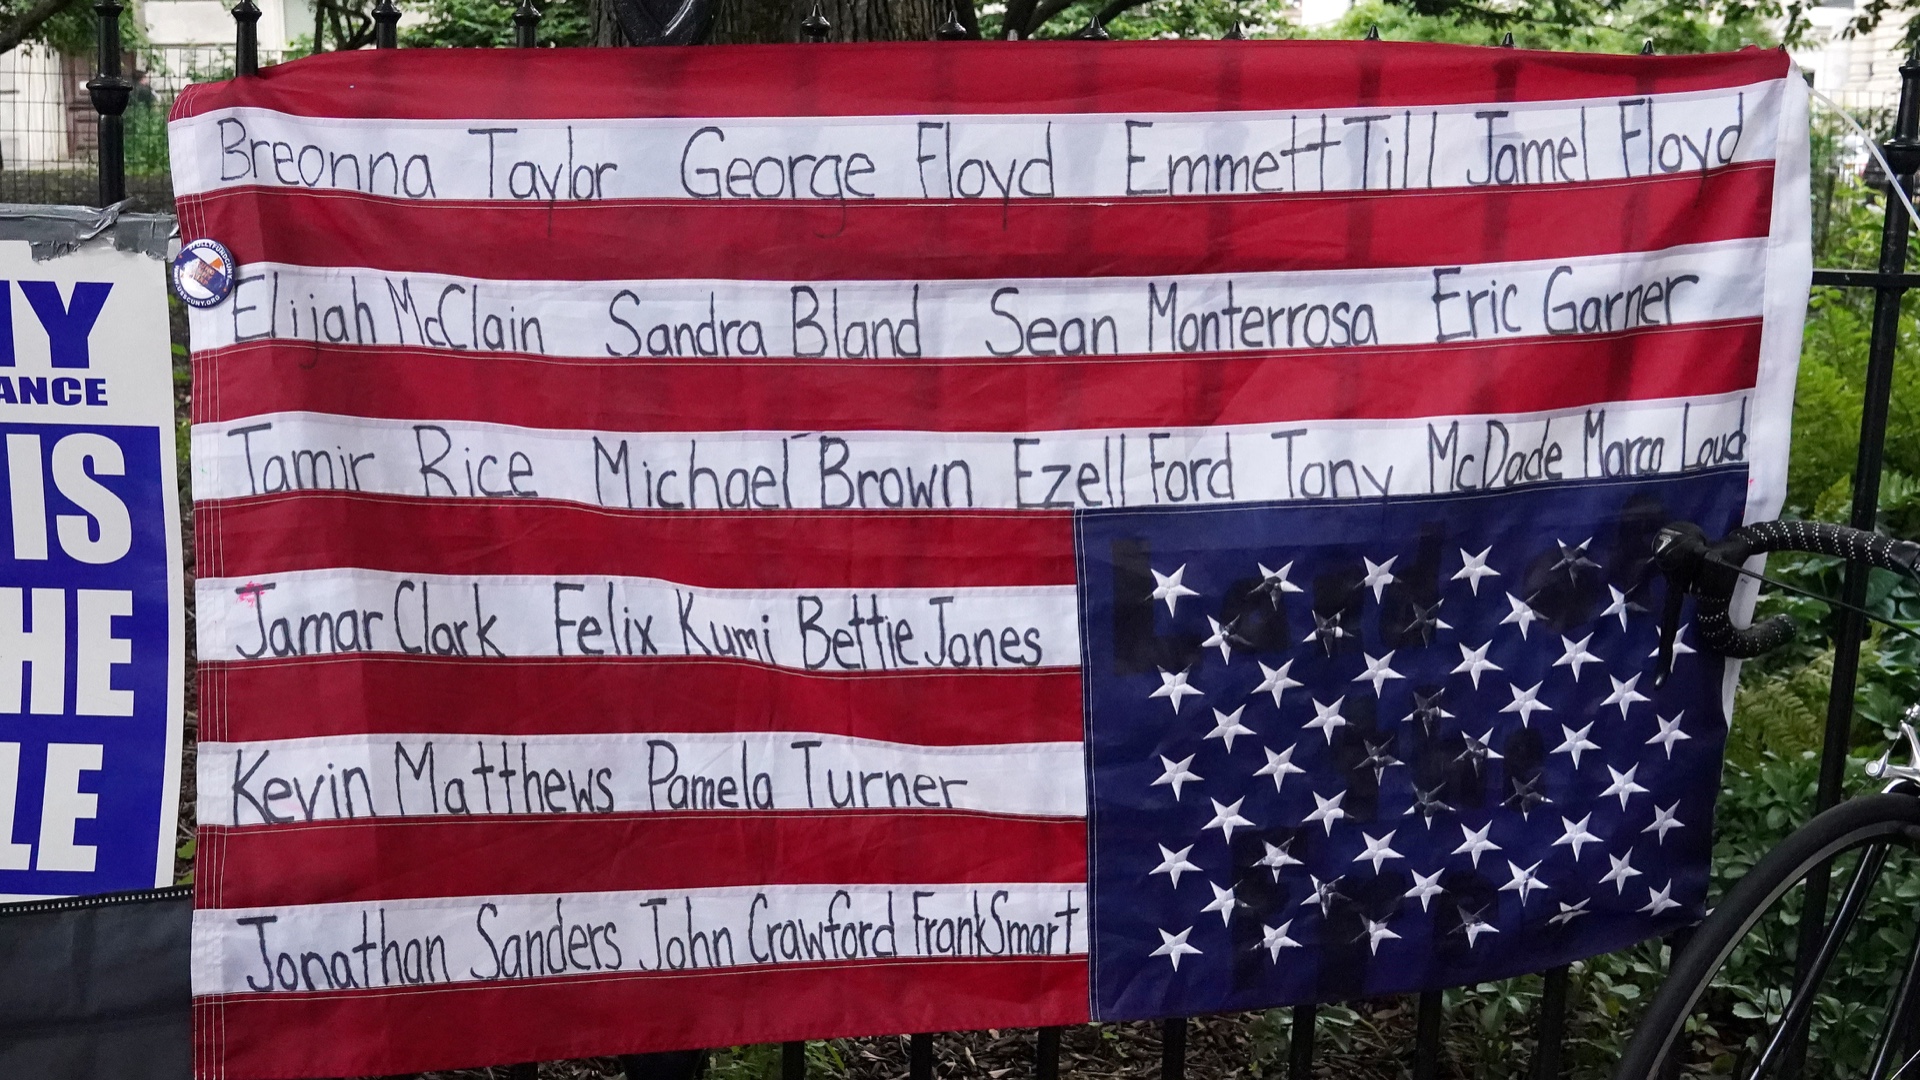 Breonna Taylor George Floyd Emmett Till Jamel Floyd
Elijah McClain Sandra Bland Sean Monterrosa Eric Garner
Tamir Rice Michael Brown Ezell Ford Tony McDade Marco Loud
Jamar Clark Felix Kumi Bettie Jones
Kevin Matthews Pamela Turner
Jonathan Sanders John Crawford Frank Smart
Land of
the
Free
NY
ANCE
IS
HE
LE